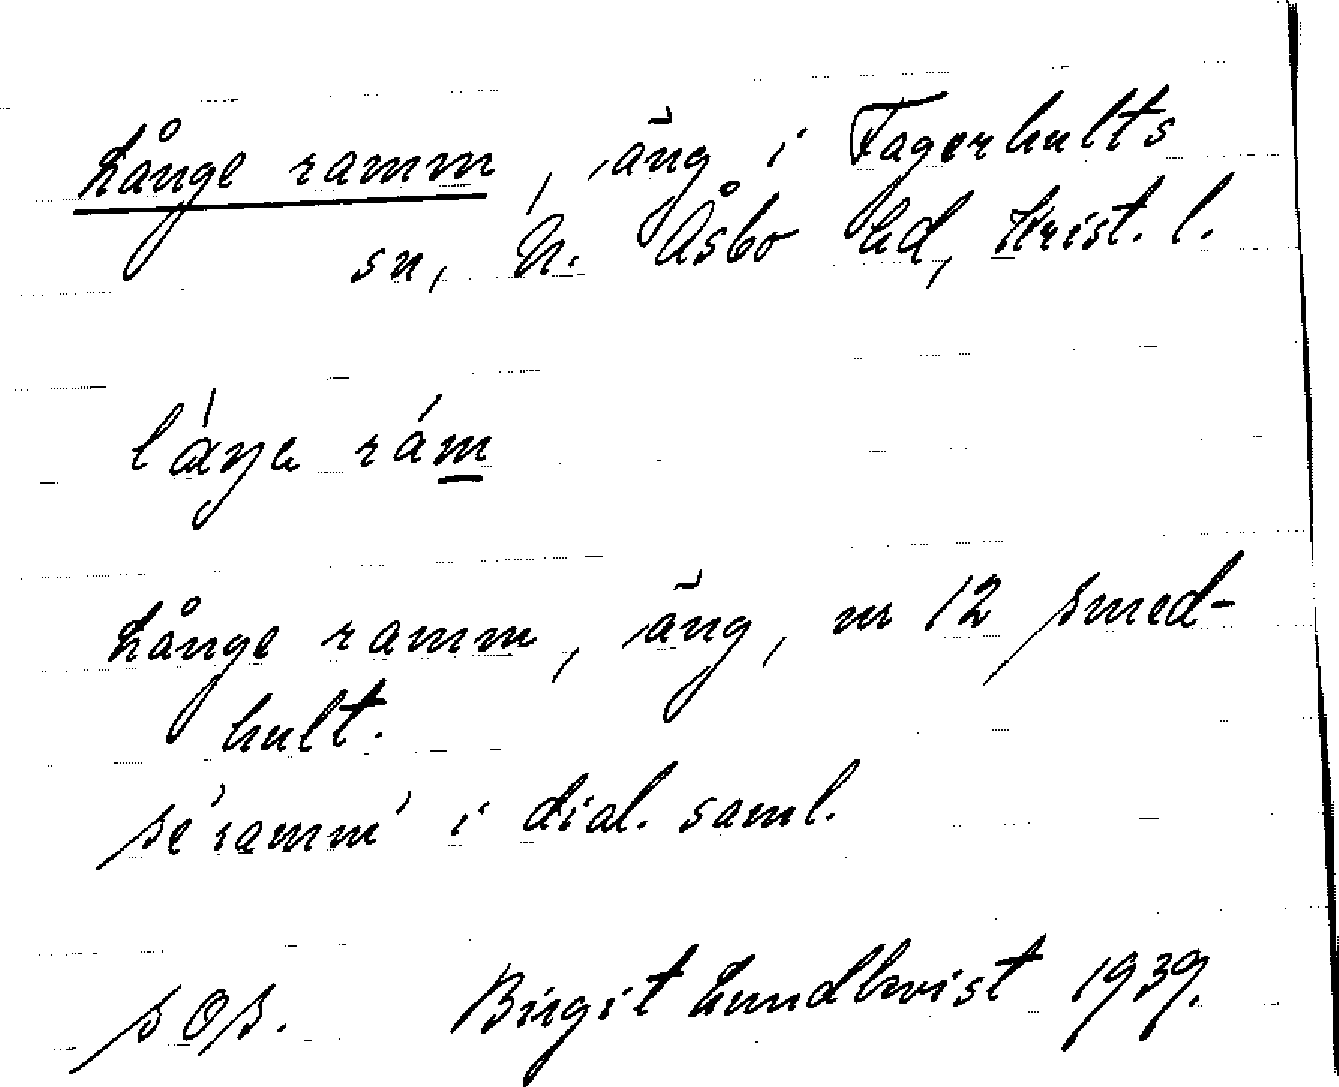 Långe ramm, äng i Fagerhults
sn, N. Åsbo hd, Krist. l.
láŋa rám
Långe ramm, äng, nr 12 Smed-
hult.
Se 'ramm' i dial. saml.
SOS. Birgit Lundkvist 1939.